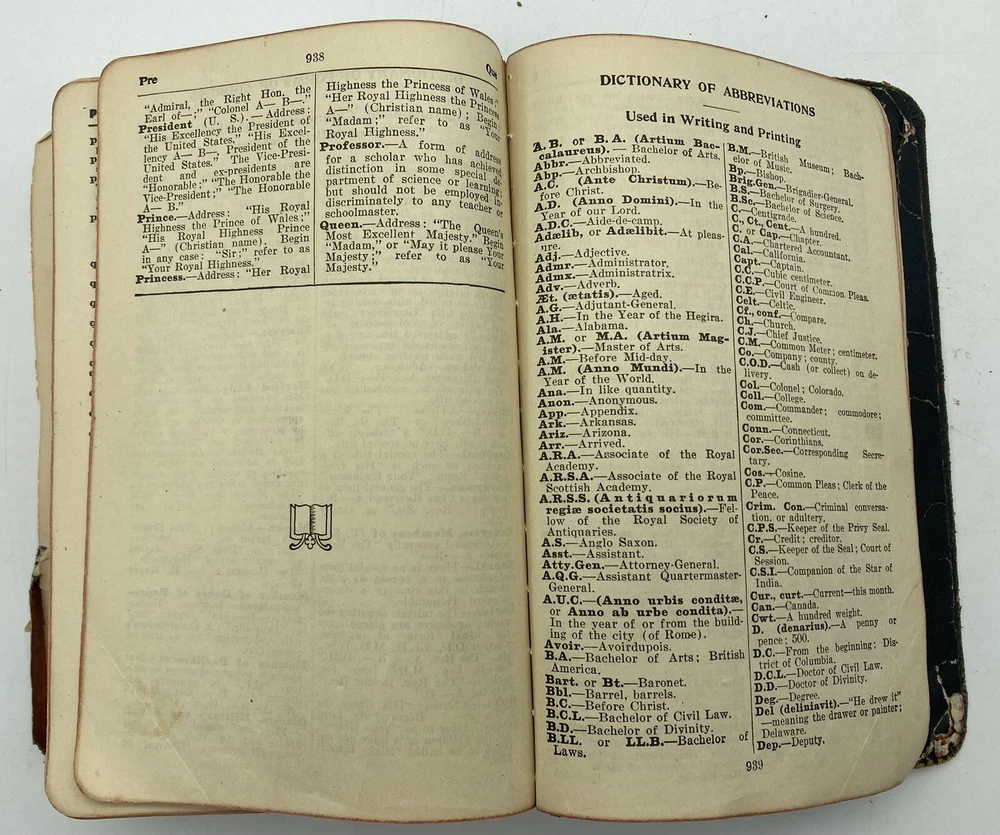 Pre
938
Que
"Admiral, the Right Hon. the
Earl of—;" "Colonel A— B—."
President (U. S.).—Address:
"His Excellency the President of
the United States," "His Excel-
lency A— B— President of the
United States." The Vice-Presi-
dent and ex-presidents are
"Honorable;" "The Honorable the
Vice-President;" "The Honorable
A— B."
Prince.—Address: "His Royal
Highness the Prince of Wales;"
"His Royal Highness Prince
A—" (Christian name). Begin
in any case: "Sir;" refer to as
"Your Royal Highness."
Princess.—Address: "Her Royal
Highness the Princess of Wales,"
"Her Royal Highness the Princess
A—" (Christian name); Begin:
"Madam;" refer to as "Your
Royal Highness."
Professor.—A form of address
for a scholar who has achieved
distinction in some special de-
partment of science or learning;
but should not be employed in-
discriminately to any teacher or
schoolmaster.
Queen.—Address: "The Queen's
Most Excellent Majesty." Begin
"Madam," or "May it please Your
Majesty;" refer to as "Your
Majesty."
DICTIONARY OF ABBREVIATIONS
Used in Writing and Printing
A.B. or B.A. (Artium Bac-
calaureus).— Bachelor of Arts.
Abbr.—Abbreviated.
Abp.—Archbishop.
A.C. (Ante Christum).—Be-
fore Christ.
A.D. (Anno Domini).—In the
Year of our Lord.
A.D.C.—Aide-de-camp.
Adælib, or Adælibit.—At pleas-
ure.
Adj.—Adjective.
Admr.—Administrator.
Admx.—Administratrix.
Adv.—Adverb.
Æt. (ætatis).—Aged.
A.G.—Adjutant-General.
A.H.—In the Year of the Hegira.
Ala.—Alabama.
A.M. or M.A. (Artium Mag-
ister).—Master of Arts.
A.M.—Before Mid-day.
A.M. (Anno Mundi).—In the
Year of the World.
Ana.—In like quantity.
Anon.—Anonymous.
App.—Appendix.
Ark.—Arkansas.
Ariz.—Arizona.
Arr.—Arrived.
A.R.A.—Associate of the Royal
Academy.
A.R.S.A.—Associate of the Royal
Scottish Academy.
A.R.S.S. (Antiquariorum
regiæ societatis socius).—Fel-
low of the Royal Society of
Antiquaries.
A.S.—Anglo Saxon.
Asst.—Assistant.
Atty.Gen.—Attorney-General.
A.Q.G.—Assistant Quartermaster-
General.
A.U.C.—(Anno urbis conditæ,
or Anno ab urbe condita).—
In the year of or from the build-
ing of the city (of Rome).
Avoir.—Avoirdupois.
B.A.—Bachelor of Arts; British
America.
Bart. or Bt.—Baronet.
Bbl.—Barrel, barrels.
B.C.—Before Christ.
B.C.L.—Bachelor of Civil Law.
B.D.—Bachelor of Divinity.
B.LL. or LL.B.—Bachelor of
Laws.
B.M.—British Museum; Bach-
elor of Music.
Bp.—Bishop.
Brig.Gen.—Brigadier-General.
B.S.—Bachelor of Surgery.
B.Sc.—Bachelor of Science.
C.—Centigrade.
C., Ct., Cent.—A hundred.
C. or Cap.—Chapter.
C.A.—Chartered Accountant.
Cal.—California.
Capt.—Captain.
C.C.—Cubic centimeter.
C.C.P.—Court of Common Pleas.
C.E.—Civil Engineer.
Celt.—Celtic.
Cf., conf.—Compare.
Ch.—Church.
C.J.—Chief Justice.
C.M.—Common Meter; centimeter.
Co.—Company; county.
C.O.D.—Cash (or collect) on de-
livery.
Col.—Colonel; Colorado.
Coll.—College.
Com.—Commander; commodore;
committee.
Conn.—Connecticut.
Cor.—Corinthians.
Cor.Sec.—Corresponding Secre-
tary.
Cos.—Cosine.
C.P.—Common Pleas; Clerk of the
Peace.
Crim. Con.—Criminal conversa-
tion, or adultery.
C.P.S.—Keeper of the Privy Seal.
Cr.—Credit; creditor.
C.S.—Keeper of the Seal; Court of
Session.
C.S.I.—Companion of the Star of
India.
Cur., curt.—Current—this month.
Can.—Canada.
Cwt.—A hundred weight.
D. (denarius).—A penny or
pence; 500.
D.C.—From the beginning; Dis-
trict of Columbia.
D.C.L.—Doctor of Civil Law.
D.D.—Doctor of Divinity.
Deg.—Degree.
Del (deliniavit).—"He drew it"
—meaning the drawer or painter;
Delaware.
Dep.—Deputy.
939